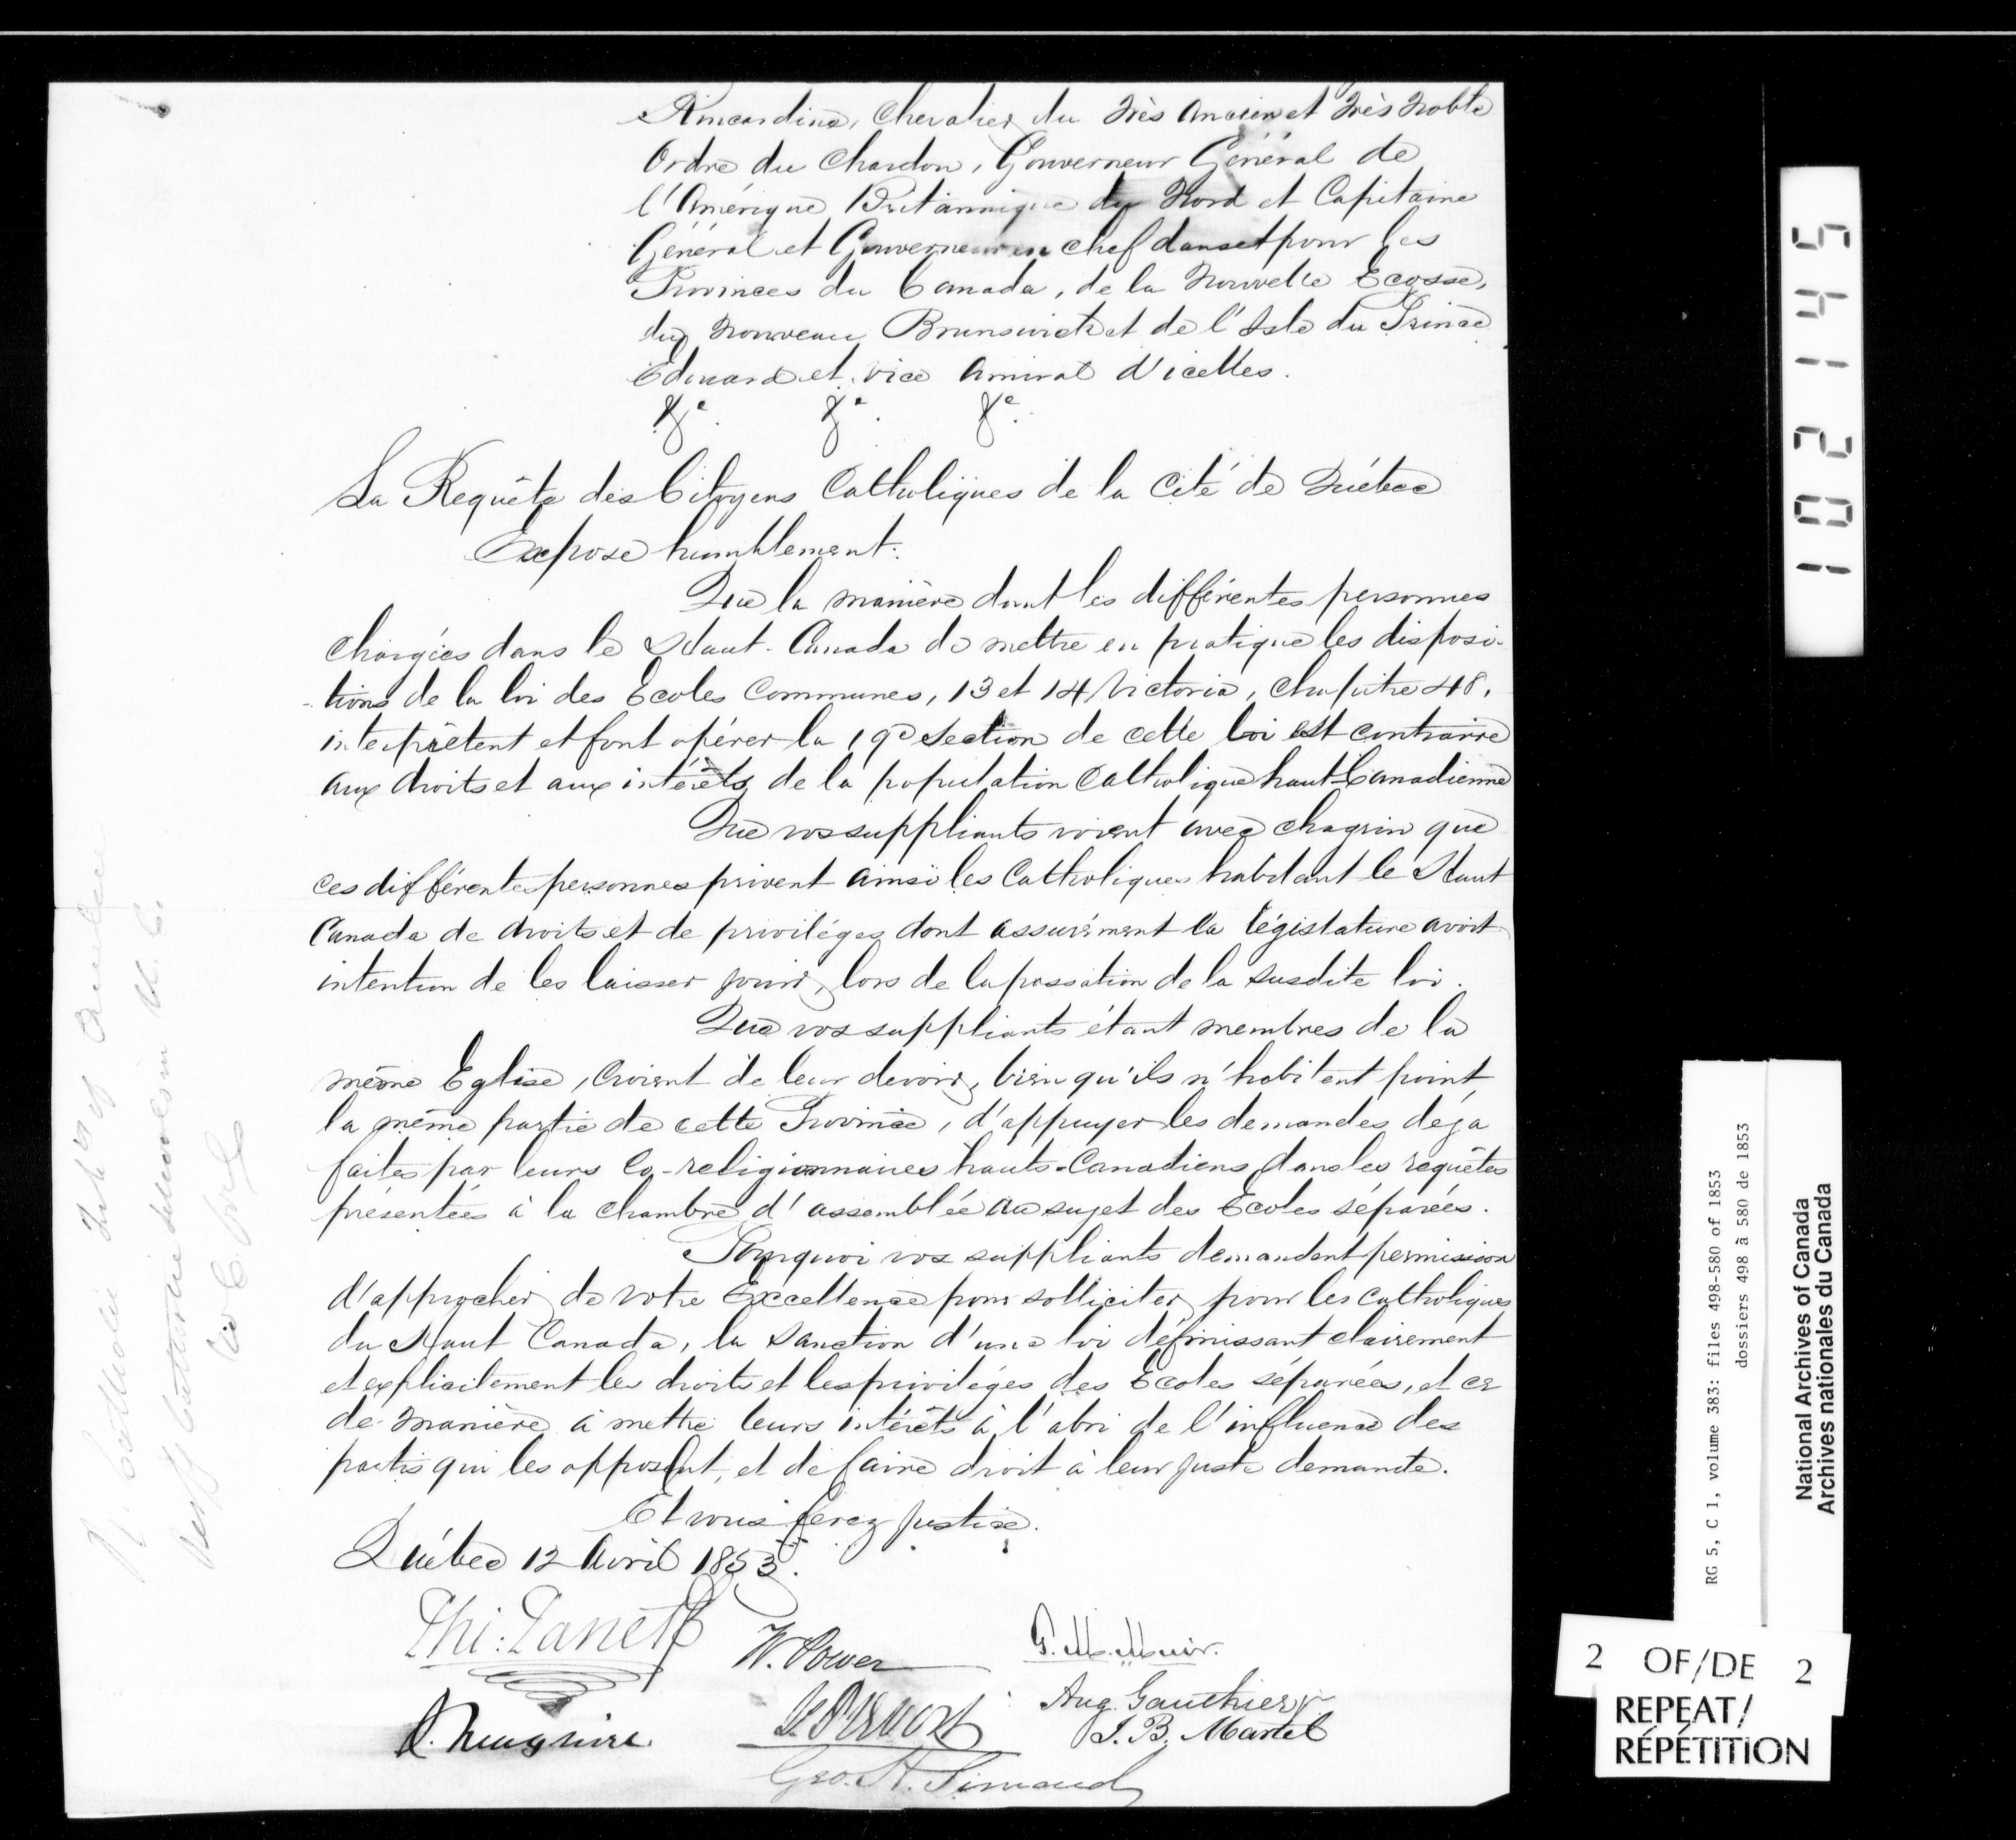 Kincardine, Chevalier du Très Ancien et Très Noble
Ordre du Chardon, Gouverneur Général de
l'Amérique Britannique du Nord et Capitaine
Général et Gouverneur en chef dans et pour les
Provinces du Canada, de la Nouvelle Ecosse,
du Nouveau Brunswick et de l'Isle du Prince
Edouard et vice Amiral d'icelles.
&c. &c. &c.
La Requête des Citoyens Catholiques de la Cité de Québec
Expose humblement:
Que la manière dont les différentes personnes
chargées dans le Haut-Canada de mettre en pratique les disposi-
tions de la loi des Ecoles Communes, 13 et 14 Victoria, Chapitre 48,
interprètent et font opérer la 19e Section de cette loi est contraire
aux droits et aux intérêts de la population Catholique haut-Canadienne
Que vos suppliants voient avec chagrin que
ces différentes personnes privent ainsi les Catholiques habitant le Haut
Canada de droits et de privilèges dont assurément la législature avoit
intention de les laisser jouir, lors de la passation de la susdite loi.
Que vos suppliants étant membres de la
même Eglise, croient de leur devoir, bien qu'ils n'habitent point
la même partie de cette Province, d'appuyer les demandes déja
faites par leurs Co-religionnaires hauts-Canadiens dans les requêtes
présentées à la chambre d'assemblée au sujet des Ecoles séparées.
Pourquoi vos suppliants demandent permission
d'approcher de votre Excellence pour solliciter, pour les catholiques
du Haut Canada, la Sanction d'une loi définissant clairement
et explicitement les droits et les privilèges des Ecoles séparées, et ce
de manière à mettre leurs intérêts à l'abri de l'influence des
partis qui les opposent, et de faire droit à leur juste demande.
Et vous ferez justice.
Québec 12 Avril 1853.
Phi: Panet
W. Power
Aug. Gauthier
J. B. Martel
Geo. H. Simard
102145
RG 5, C 1, volume 383: files 498-580 of 1853
dossiers 498 à 580 de 1853
National Archives of Canada
Archives nationales du Canada
2 OF/DE 2
REPEAT/
RÉPÉTITION